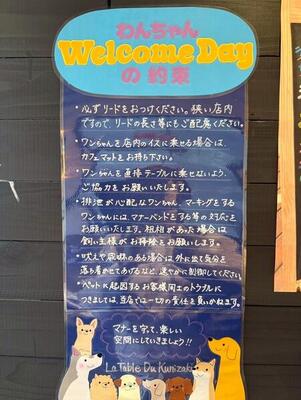 わんちゃん
Welcome Day
の約束
・必ずリードをおつけください。狭い店内
ですので、リードの長さ等にもご配慮ください。
・ワンちゃんを店内のイスに乗せる場合は、
カフェマットをお持ち下さい。
・ワンちゃんを直接テーブルに乗せないよう、
ご協力をお願いいたします。
・排泄が心配なワンちゃん、マーキングをする
ワンちゃんには、マナーバンドをする等の対応を
お願いいたします。粗相があった場合は
飼い主様がお掃除をお願いします。
・吠えや
の場合は外に出て気分を
落ち着かせてあげるなど、速やかに制御してください。
・ペットに起因するお客様同士のトラブルに
つきましては、当店では一切の責任を負いかねます。
マナーを守って、楽しい
空間にしていきましょう!!
La Table Du Kunizaki